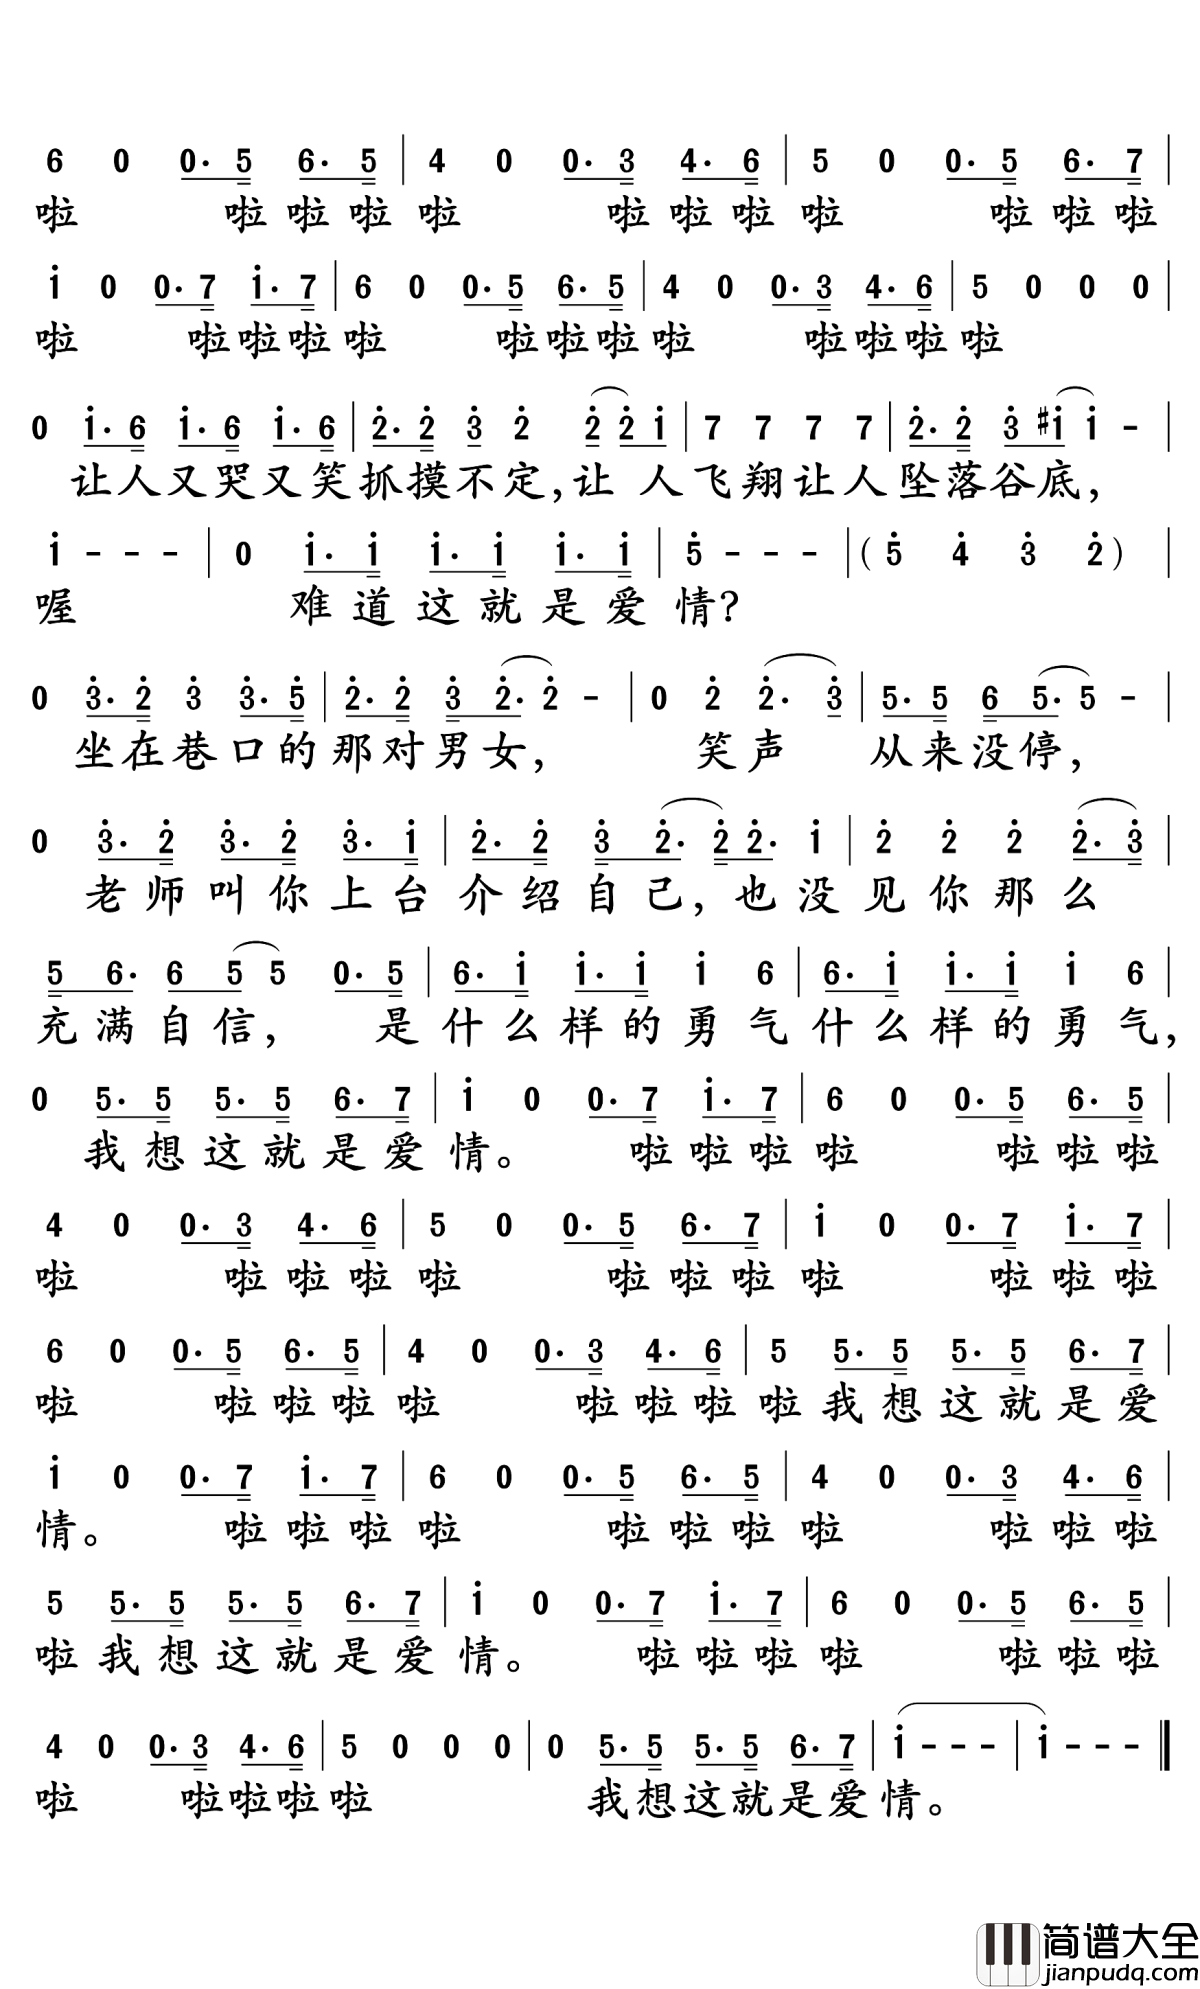 6 0 0· 5 6· 5 | 4 0 0· 3 4· 6 | 5 0 0· 5 6· 7 |
啦 啦 啦 啦 啦 啦 啦 啦 啦 啦 啦 啦
i 0 0· 7 i· 7 | 6 0 0· 5 6· 5 | 4 0 0· 3 4· 6 | 5 0 0 0 |
啦 啦啦啦啦 啦啦啦啦 啦啦啦啦
0 i· 6 i· 6 i· 6 | 2· 2 3 2 2 2 i | 7 7 7 7 | 2· 2 3 #i i - |
让人又哭又笑抓摸不定,让 人飞翔让人坠落谷底,
i - - - | 0 i· i i· i i· i | 5 - - - | ( 5 4 3 2 ) |
喔 难道这就是爱情?
0 3· 2 3 3· 5 | 2· 2 3 2· 2 - | 0 2 2· 3 | 5· 5 6 5· 5 - |
坐在巷口的那对男女, 笑声 从来没停,
0 3· 2 3· 2 3· i | 2· 2 3 2· 2 2· i | 2 2 2 2· 3 |
老师叫你上台介绍自己,也没见你那么
5 6· 6 5 5 0· 5 | 6· i i· i i 6 | 6· i i· i i 6 |
充满自信, 是什么样的勇气什么样的勇气,
0 5· 5 5· 5 6· 7 | i 0 0· 7 i· 7 | 6 0 0· 5 6· 5 |
我想这就是爱情。 啦啦啦啦 啦啦啦
4 0 0· 3 4· 6 | 5 0 0· 5 6· 7 | i 0 0· 7 i· 7 |
啦 啦 啦 啦 啦 啦 啦 啦 啦 啦 啦 啦
6 0 0· 5 6· 5 | 4 0 0· 3 4· 6 | 5 5· 5 5· 5 6· 7 |
啦 啦啦啦啦 啦啦啦啦我想这就是爱
i 0 0· 7 i· 7 | 6 0 0· 5 6· 5 | 4 0 0· 3 4· 6 |
情。 啦 啦 啦 啦 啦 啦 啦 啦 啦 啦 啦
5 5· 5 5· 5 6· 7 | i 0 0· 7 i· 7 | 6 0 0· 5 6· 5 |
啦我想这就是爱情。 啦啦啦啦 啦啦啦
4 0 0· 3 4· 6 | 5 0 0 0 | 0 5· 5 5· 5 6· 7 | i - - - | i - - - ‖
啦 啦啦啦啦 我想这就是爱情。
简谱大全
jianpudq.com